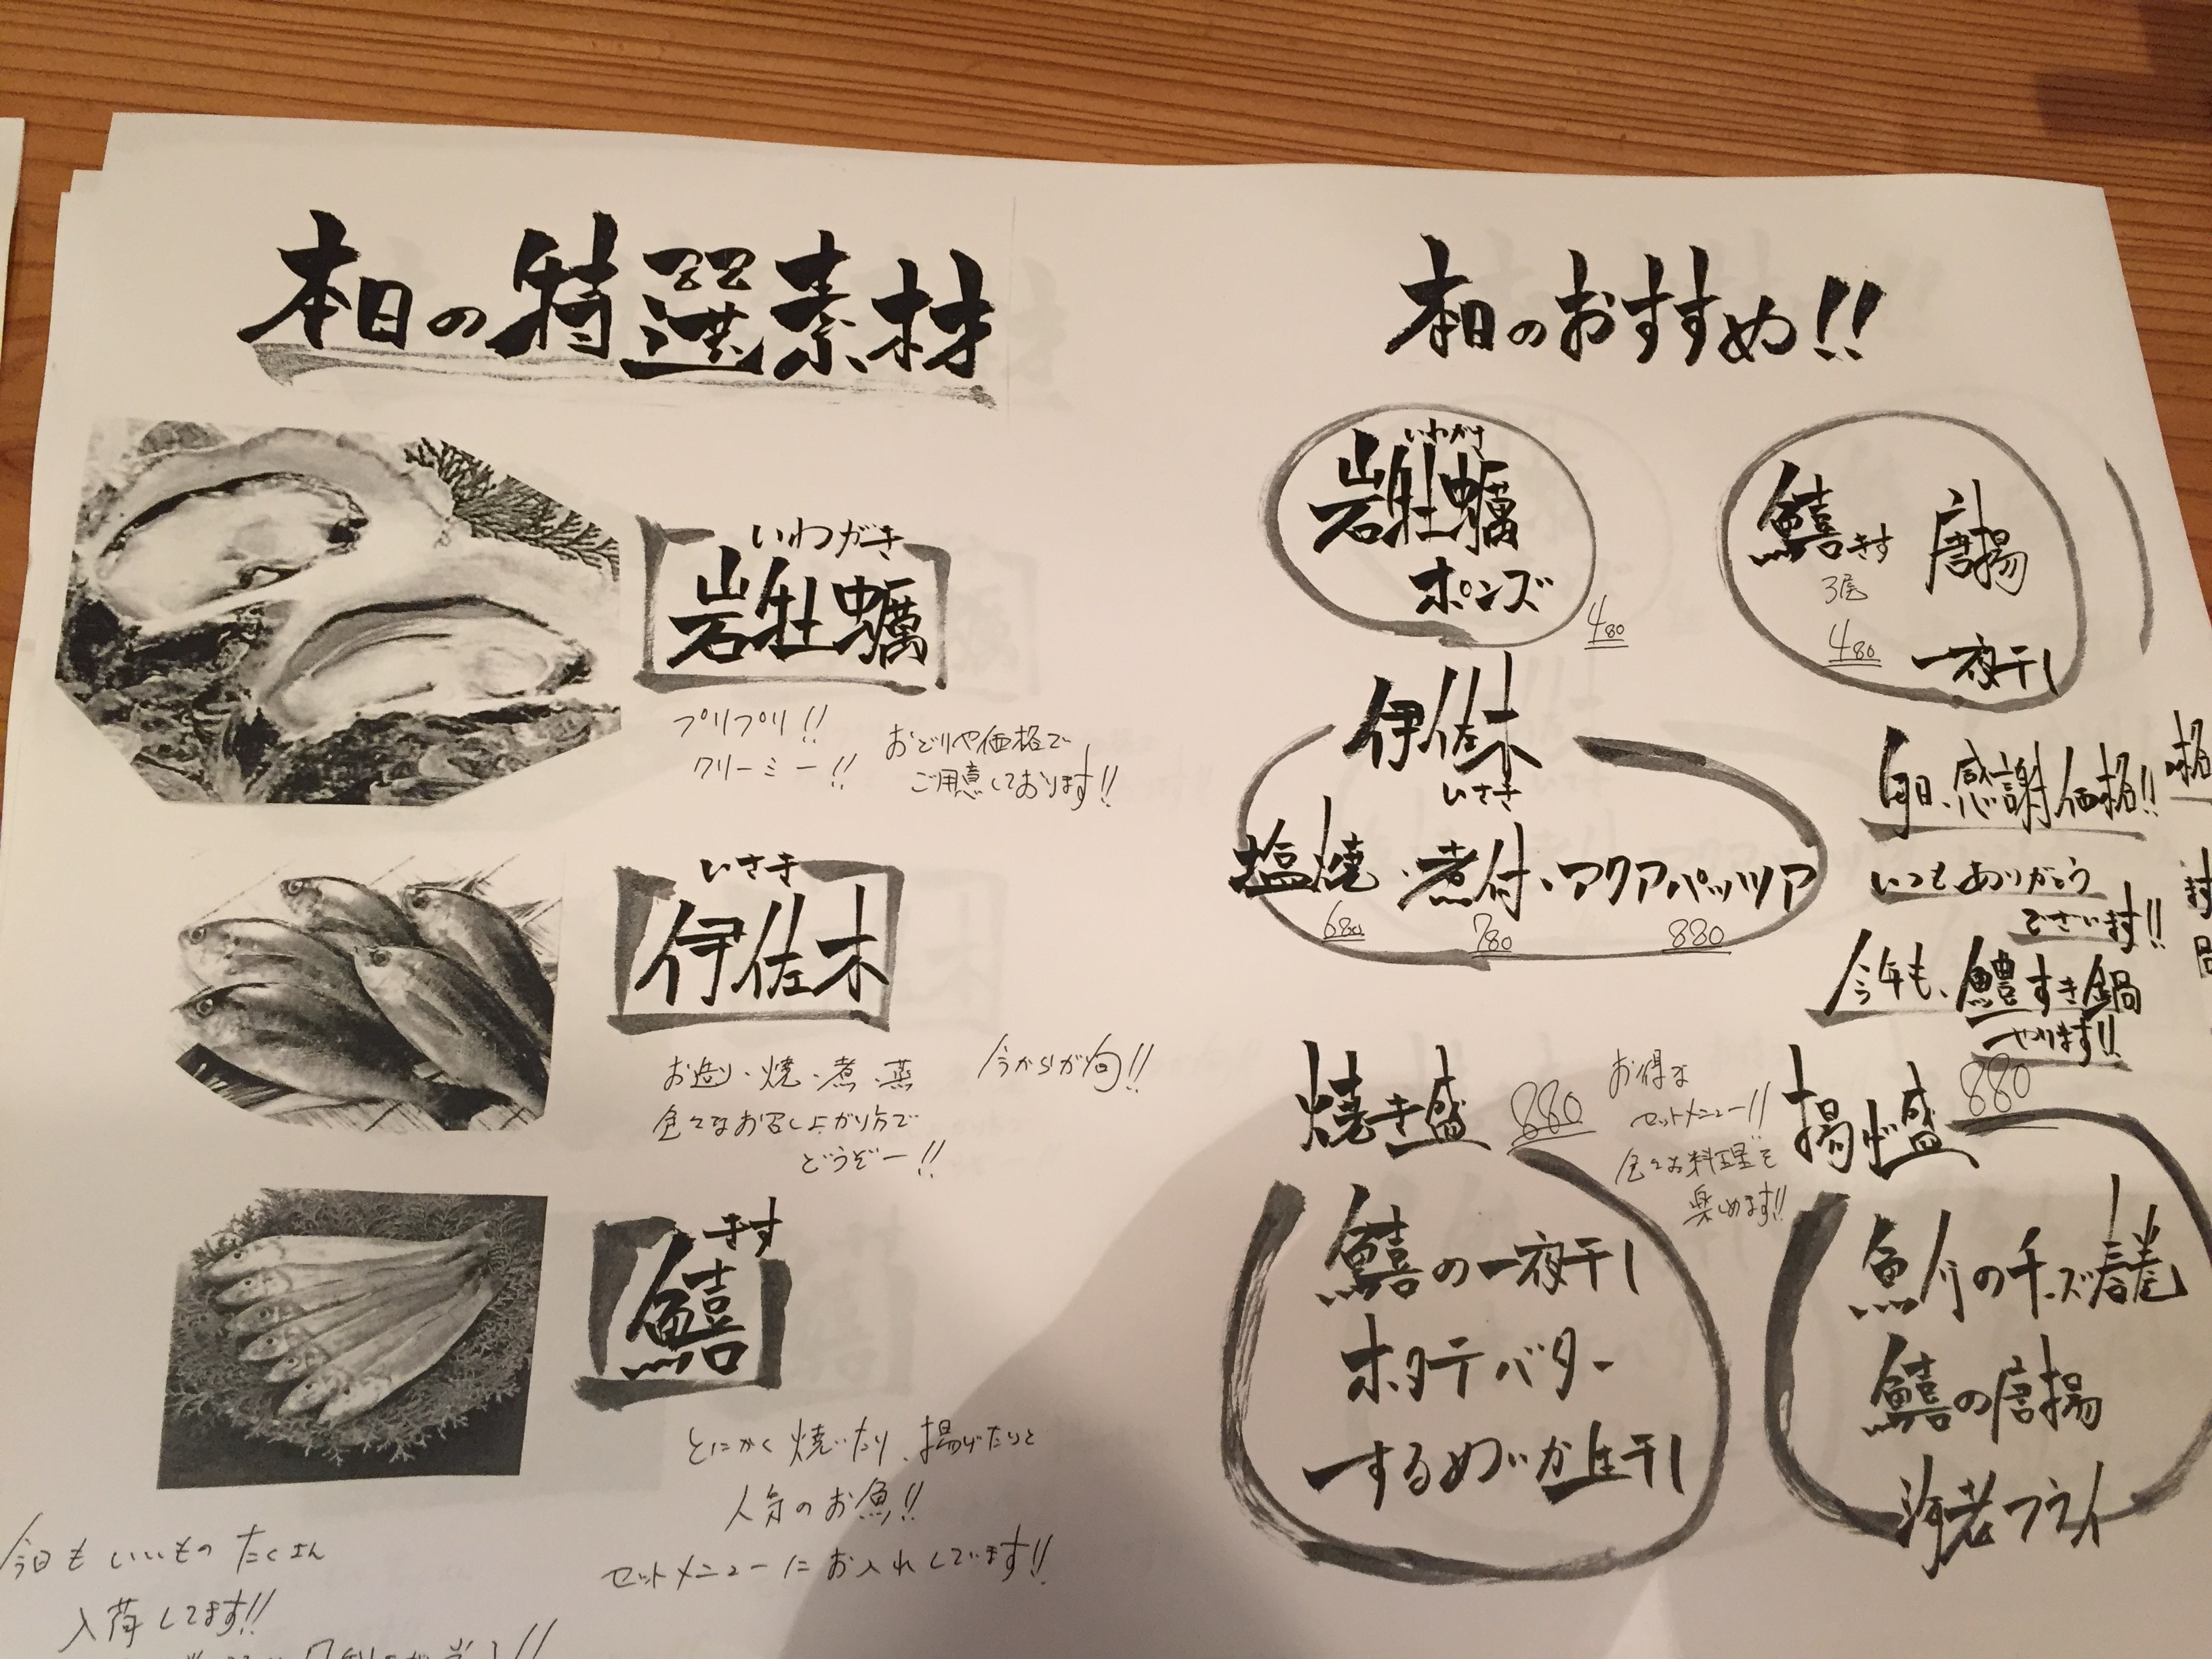 本日の特選素材
いわがき
岩牡蠣
プリプリ!!
クリーミー!!
おどりや価格で
ご用意しております!!
いさき
伊佐木
お造り・焼・煮・蒸
色々なお召し上がり方で
どうぞー!!
今からが旬!!
きす
鱚
とにかく焼いたり、揚げたりと
人気のお魚!!
セットメニューにお入れしています!!
今日もいいものたくさん
入荷してます!!
本日のおすすめ!!
いわがき
岩牡蠣
ポンズ
480
鱚きす 唐揚
3尾
480
一夜干し
伊佐木
いさき
塩焼・煮付・アクアパッツア
680 780 880
毎日、感謝価格!!
いつもありがとう
でさい封!!
今年も、鱧すき鍋
やります!!
焼き盛 880
お得な
セットメニュー!!
色々お料理を
楽しめます!!
鱚の一夜干し
ホタテバター
するめいか生干し
揚げ盛 880
のチーズ春巻
鱚の唐揚
海老フライ